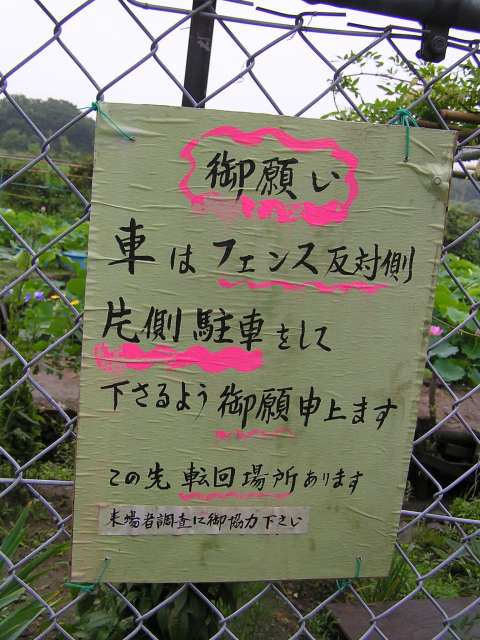 御願い
車はフェンス反対側
片側駐車をして
下さるよう御願申上ます
この先転回場所あります
来場者調査に御協力下さい